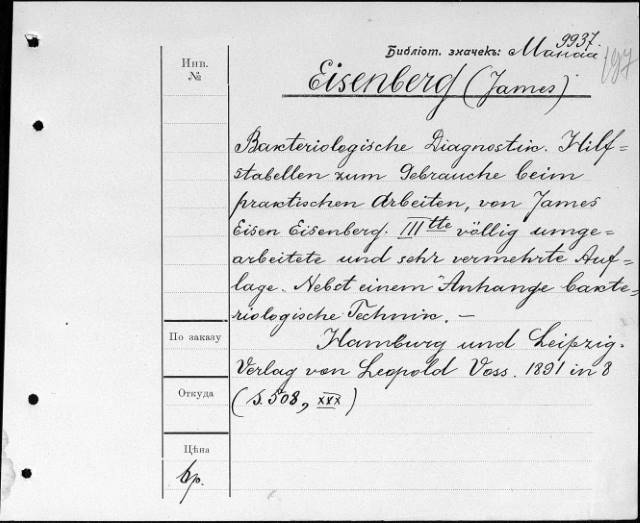 9937.
Библіот. значекъ:
197
Инв.
№
Eisenberg (James)
Bakteriologische Diagnostik. Hilf=
stabellen zum Gebrauche beim
praktischen Arbeiten, von James
Eisen Eisenberg. IIItte völlig umge=
arbeitete und sehr vermehrte Auf=
lage. Nebst einem Anhange bakte=
riologische Technik. —
По заказу
Hamburg und Leipzig.
Verlag von Leopold Voss. 1891 in 8
Откуда
(S. 508, XXX)
Цѣна